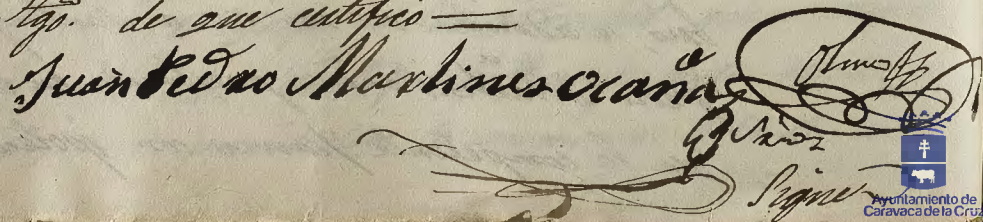 tgo. de que certifico =
Juan Pedro Martines Ocaña
Ayuntamiento de
Caravaca de la Cruz